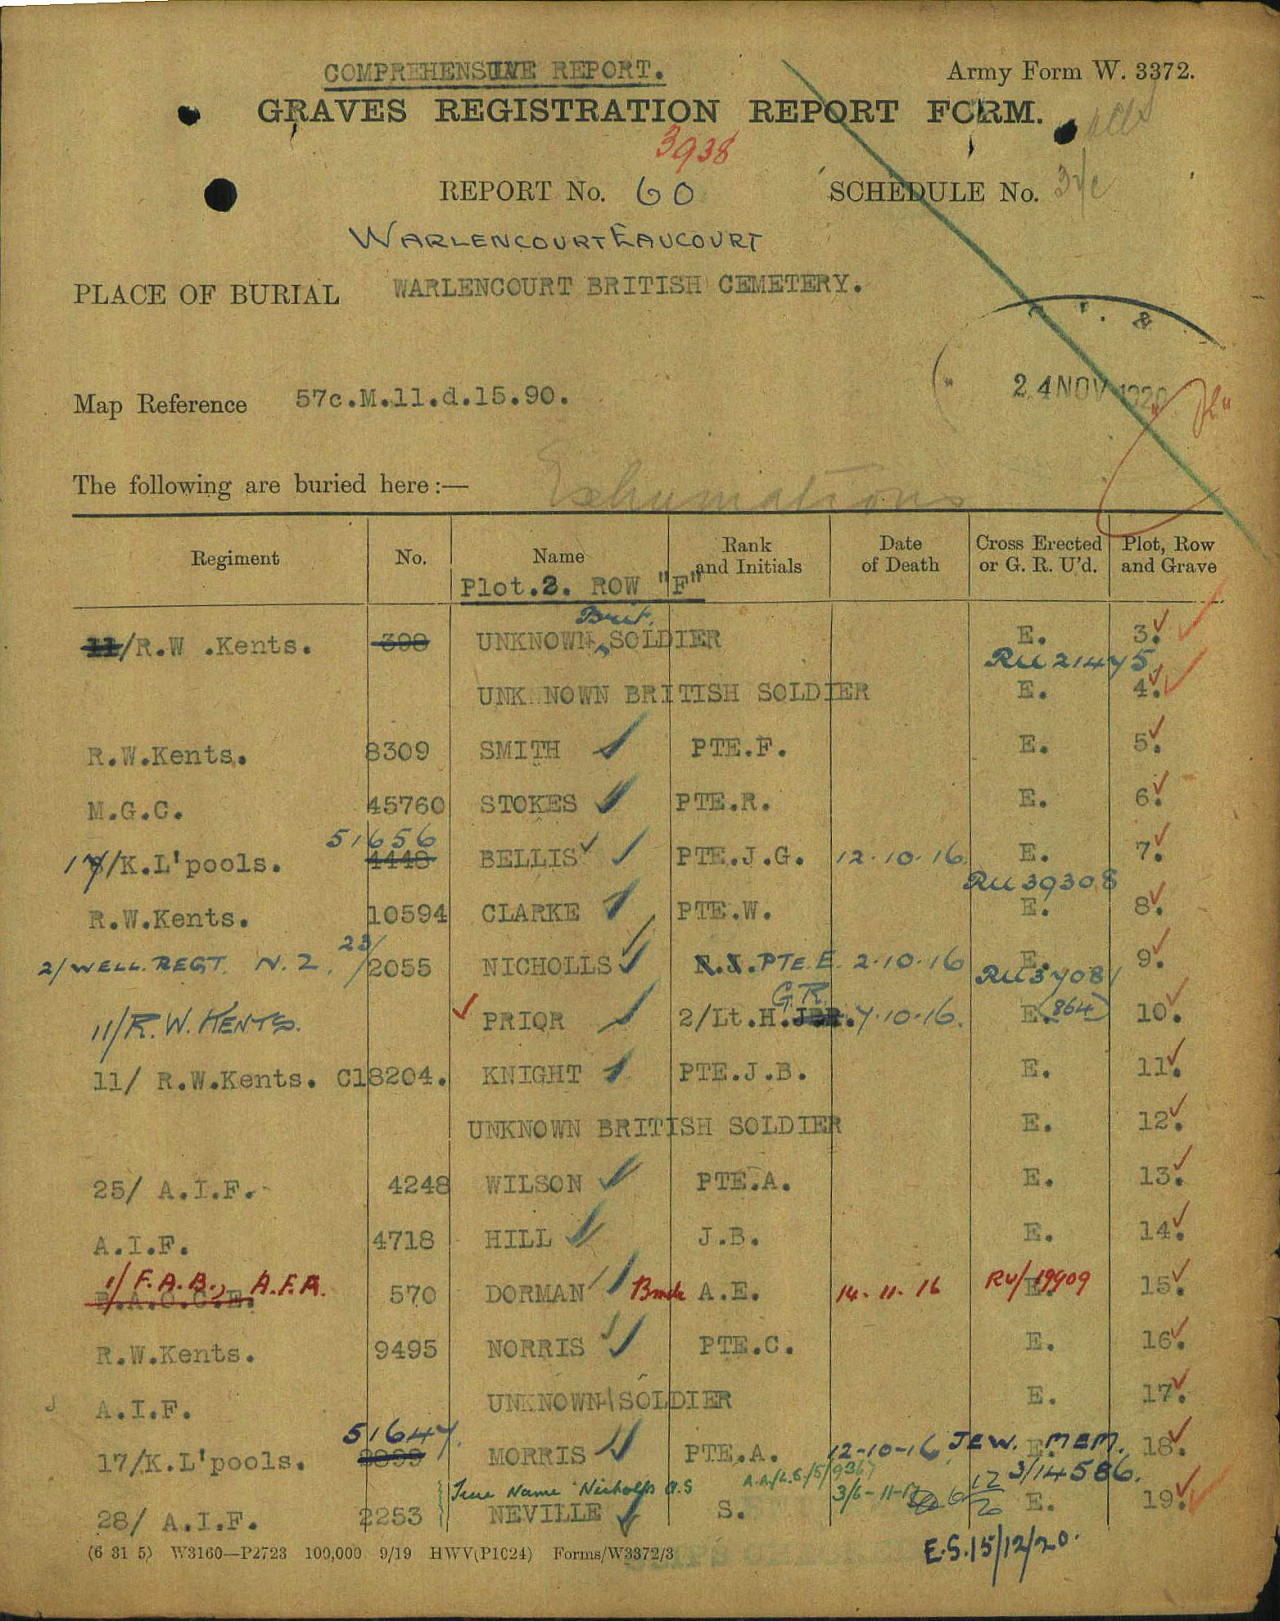 COMPREHENSIVE REPORT.
Army Form W. 3372.
GRAVES REGISTRATION REPORT FORM.
3938
REPORT No. 60 SCHEDULE No.
WARLENCOURT EAUCOURT
PLACE OF BURIAL WARLENCOURT BRITISH CEMETERY.
&
24 NOV 1920
Map Reference 57c.M.11.d.15.90.
Exhumations
The following are buried here:—
Regiment No. Name Rank and Initials Date of Death Cross Erected or G. R. U'd. Plot, Row and Grave
Plot.2. ROW "F"
Brit.
11/R.W .Kents. 398 UNKNOWN SOLDIER E. 3.
RU 21475
UNKNOWN BRITISH SOLDIER E. 4.
R.W.Kents. 8309 SMITH PTE.F. E. 5.
M.G.C. 45760 STOKES PTE.R. E. 6.
51656
17/K.L'pools. 4448 BELLIS PTE.J.G. 12.10.16. E. 7.
RU 39308
R.W.Kents. 10594 CLARKE PTE.W. E. 8.
2/WELL. REGT. N.Z. 23/2055 NICHOLLS PTE. E. 2.10.16 E. 9.
RU 37081
G.R.
11/R.W. KENTS. PRIOR 2/Lt.H. 7.10.16. E. (864) 10.
11/ R.W.Kents. C18204. KNIGHT PTE.J.B. E. 11.
UNKNOWN BRITISH SOLDIER E. 12.
25/ A.I.F. 4248 WILSON PTE.A. E. 13.
A.I.F. 4718 HILL J.B. E. 14.
1/ F.A.B., A.F.A. 570 DORMAN A.E. 14.11.16 RU/19909 E. 15.
R.W.Kents. 9495 NORRIS PTE.C. E. 16.
A.I.F. UNKNOWN SOLDIER E. 17.
51647.
17/K.L'pools. MORRIS PTE.A. 12-10-16 JEW. MEM. E. 18.
3/14586.
True Name Nicholls A.S
3/6-11-17
28/ A.I.F. 2253 NEVILLE S. E. 19.
(6 31 5) W3160—P2723 100,000 9/19 HWV(P1024) Forms/W3372/3
E.S. 15/12/20.